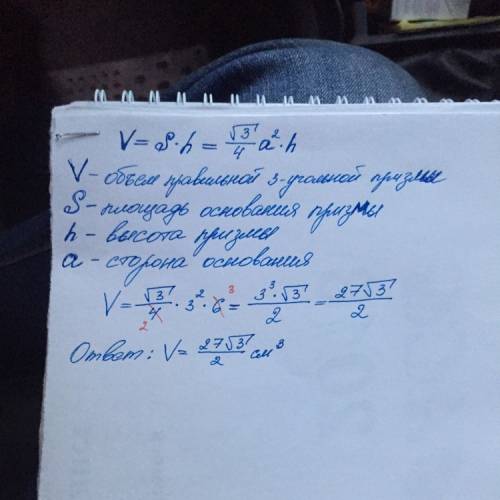 V = S·h = √3/4 a²·h
V - объем правильной 3-угольной призмы
S - площадь основания призмы
h - высота призмы
a - сторона основания
V = √3/4 · 3² · 6 = 3³·√3/2 = 27√3/2
2 3
Ответ: V = 27√3/2 см³